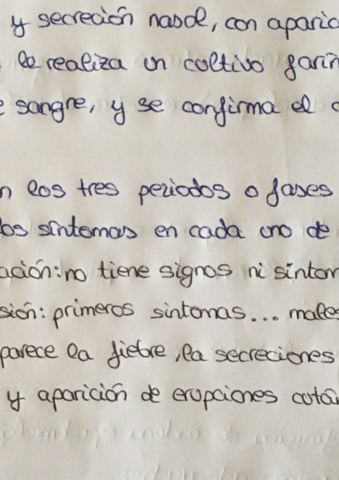 y secreción nasal, con aparic
le realiza un cultivo farín
e sangre, y se confirma el d
n los tres periodos o fases
os síntomas en cada uno de
ación: no tiene signos ni síntom
sión: primeros sintomas... males
parece la fiebre, la secreciones
y aparición de erupciones cután